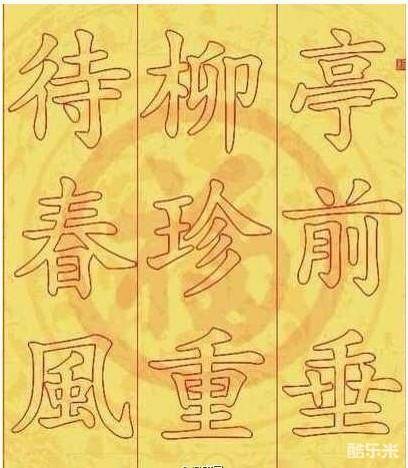 亭前垂
柳珍重
待春風
酷乐米